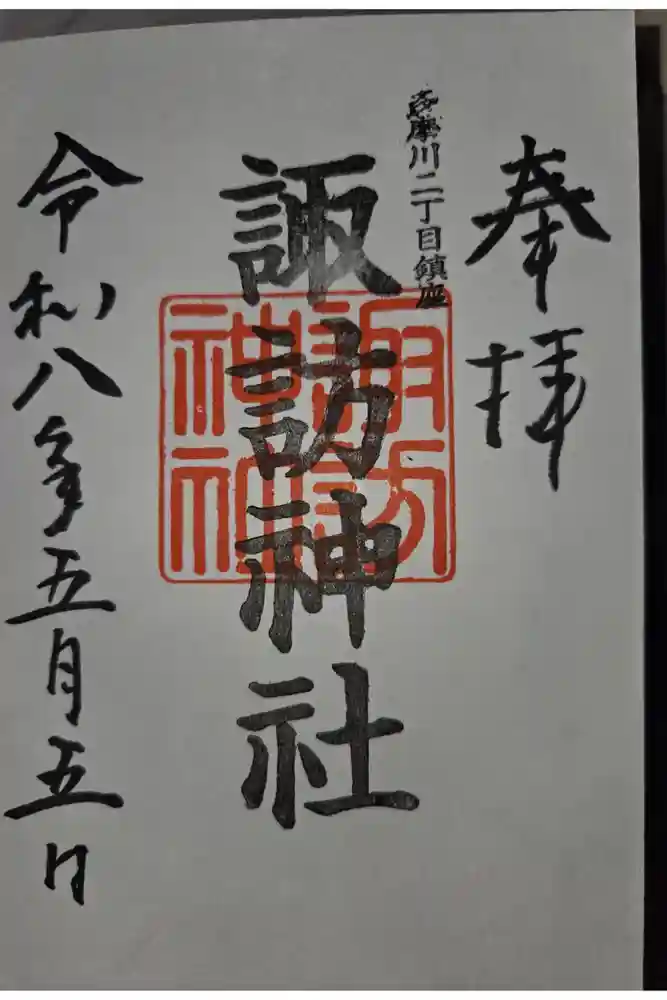 奉拝
多摩川二丁目鎮座
諏訪神社
諏訪神社
令和八年五月五日